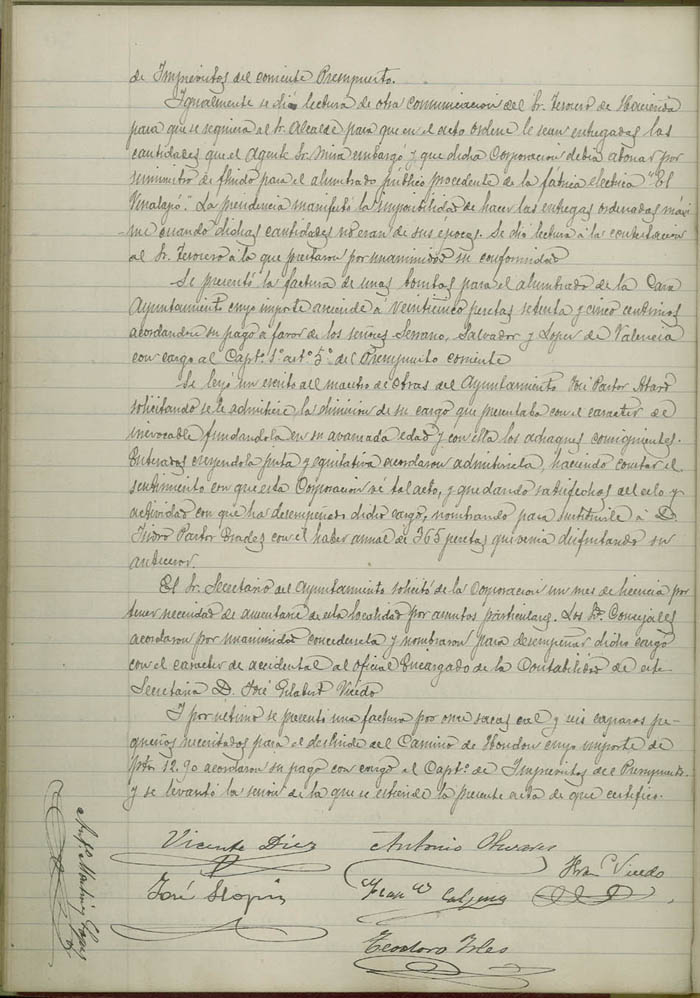 de Imprevistos del corriente Presupuesto.
Igualmente se dió lectura de otra comunicacion del Sr. Tesorero de Hacienda
para que se requiera al Sr. Alcalde para que en el acto ordene le sean entregadas las
cantidades que el Agente Sr. Mira embargó y que dicha Corporacion debia abonar por
suministro de fluido para el alumbrado público procedente de la fábrica electrica "El
Vinalapó". La presidencia manifestó la imposibilidad de hacer las entregas ordenadas máxi-
me cuando dichas cantidades no eran de sus épocas. Se dió lectura á la contestacion
al Sr. Tesorero á la que prestaron por unanimidad su conformidad
Se presentó la factura de unas bombas para el alumbrado de la Casa
Ayuntamiento cuyo importe asciende á veinticinco pesetas setenta y cinco centimos
acordandose su pago á favor de los señores Serrano, Salvador y Lopez de Valencia
con cargo al Capto. 1º artº 5º del Presupuesto corriente
Se leyó un escrito del maestro de Obras del Ayuntamiento José Pastor
solicitando se le admitiese la dimision de su cargo que presentaba con el caracter de
irrevocable fundandola en su avanzada edad y con ella los achaques consiguientes.
Enterados creyendola justa y equitativa acordaron admitirsela, haciendo constar el
sentimiento con que esta Corporacion vé tal acto, y quedando satisfechos del celo y
actividad con que ha desempeñado dicho cargo, nombrando para sustituirle á D.
Isidro Pastor con el haber anual de 365 pesetas que venia disfrutando su
antecesor.
El Sr. Secretario del Ayuntamiento solicitó de la Corporacion un mes de licencia por
tener necesidad de ausentarse de esta localidad por asuntos particulares. Los Sres. Concejales
acordaron por unanimidad concedersela y nombraron para desempeñar dicho cargo
con el caracter de accidental al oficial Encargado de la Contabilidad de este
Secretaria D. José Gilabert Vicedo
I por último se presentó una factura por once sacas cal y seis caparos pe-
queños necesitados para el deslinde del Camino de Hondon cuyo importe de
Ptas. 12.90 acordaron su pago con cargo el Capto. de Imprevistos del Presupuesto.
y se levantó la sesion de la que se extiende la presente acta de que certifico.
Vicente Diez
Antonio Olivares
Vicedo
José
Teodoro